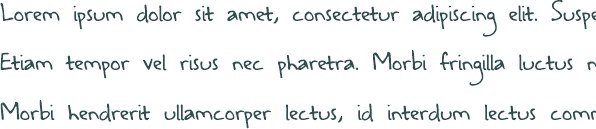 Lorem ipsum dolor sit amet, consectetur adipiscing elit. Suspe
Etiam tempor vel risus nec pharetra. Morbi fringilla luctus n
Morbi hendrerit ullamcorper lectus, id interdum lectus comm